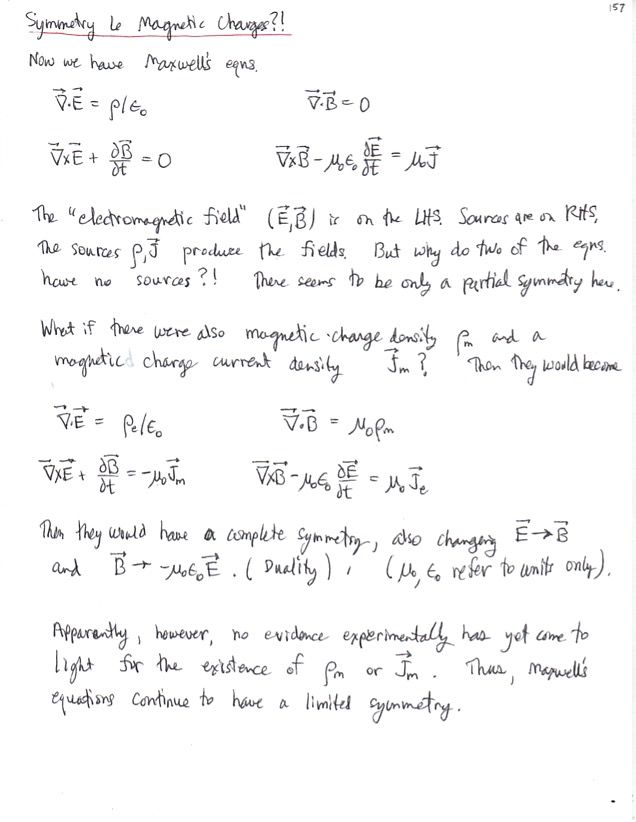 157
Symmetry & Magnetic Charges?!
Now we have Maxwell's eqns.
∇⃗·E⃗ = ρ/ε₀ ∇⃗·B⃗ = 0
∇⃗×E⃗ + ∂B⃗/∂t = 0 ∇⃗×B⃗ - μ₀ε₀ ∂E⃗/∂t = μ₀J⃗
The "electromagnetic field" (E⃗,B⃗) is on the LHS. Sources are on RHS,
The sources ρ,J⃗ produce the fields. But why do two of the eqns.
have no sources?! There seems to be only a partial symmetry here.
What if there were also magnetic charge density ρm and a
magnetic charge current density J⃗m? Then they would become
∇⃗·E⃗ = ρe/ε₀ ∇⃗·B⃗ = μ₀ρm
∇⃗×E⃗ + ∂B⃗/∂t = -μ₀J⃗m ∇⃗×B⃗ - μ₀ε₀ ∂E⃗/∂t = μ₀J⃗e
Then they would have a complete symmetry, also changing E⃗→B⃗
and B⃗→ -μ₀ε₀E⃗. (Duality), (μ₀, ε₀ refer to units only).
Apparently, however, no evidence experimentally has yet come to
light for the existence of ρm or J⃗m. Thus, Maxwell's
equations continue to have a limited symmetry.